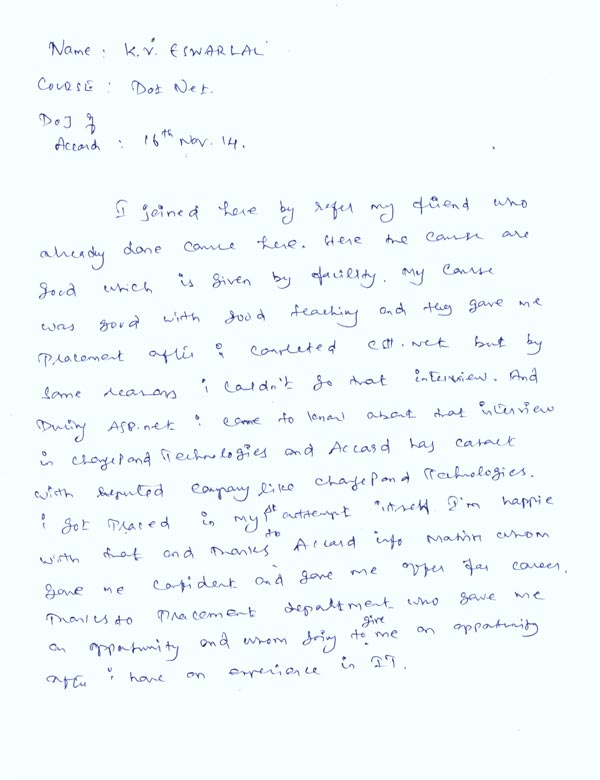 Name : K.V. ESWARLAL
COURSE : Dot Net.
DOJ of
Accord : 16th Nov. 14.
I joined here by refer my friend who
already done course here. Here the course are
good which is given by facility. My course
was good with good teaching and they gave me
Placement after i completed C#.net but by
some reasons i couldn't go that interview. And
During ASP.net i come to know about that interview
in chargePond Technologies and Accord has contact
with reputed company like chargePond Technologies.
i got Placed in my 1st attempt itself I'm happie
with that and thanks to Accord info matrix whom
gave me confident and gave me offer for career.
Thanks to Placement department who gave me
an opportunity and whom going to give me an opportunity
after i have an experience in IT.